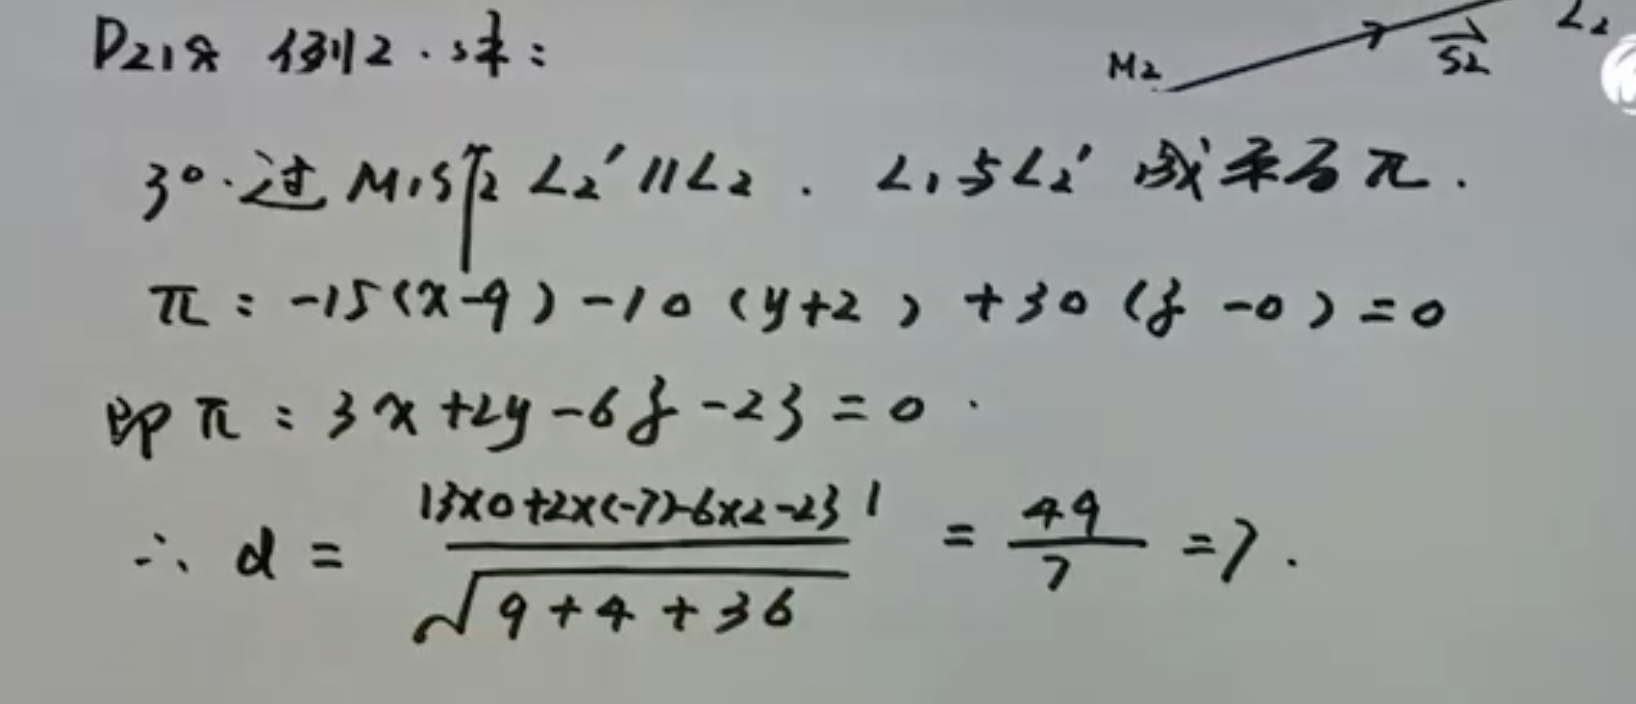 P218 例2.求:
M2 S2 L2
3°.过M1作L2'∥L2. L1与L2'成平面π.
π:-15(x-9)-10(y+2)+30(z-0)=0
即π:3x+2y-6z-23=0.
∴ d = |3×0+2×(-7)-6×2-23| / √9+4+36 = 49/7 =7.